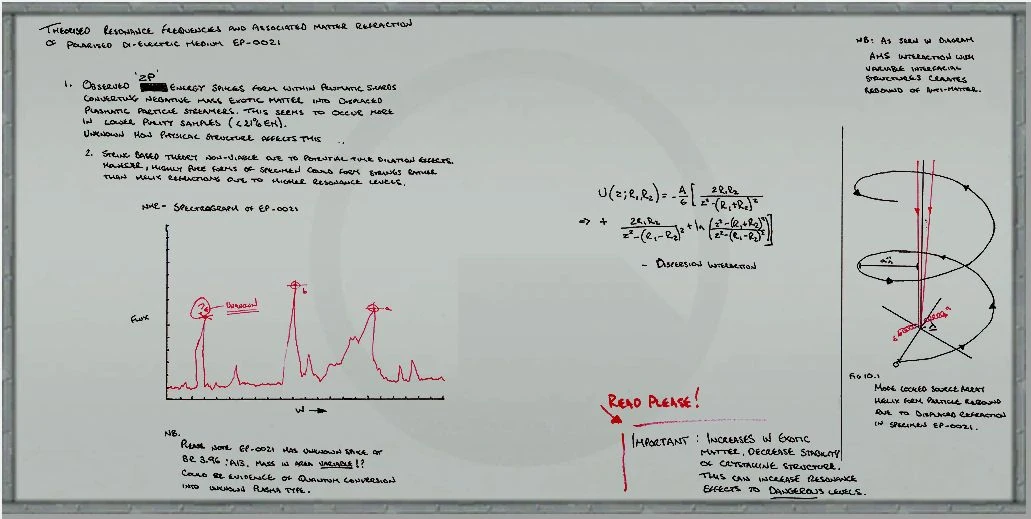 THEORISED RESONANCE FREQUENCIES AND ASSOCIATED MATTER REFRACTION
OF POLARISED DI-ELECTRIC MEDIUM EP-0021
1. OBSERVED 'ZP' ENERGY SPIKES FORM WITHIN PRISMATIC SHARDS
CONVERTING NEGATIVE MASS EXOTIC MATTER INTO DISPLACED
PLASMATIC PARTICLE STREAMERS. THIS SEEMS TO OCCUR MORE
IN LOWER PURITY SAMPLES (<21% EH).
UNKNOWN HOW PHYSICAL STRUCTURE AFFECTS THIS ..
2. STRING BASED THEORY NON-VIABLE DUE TO POTENTIAL TIME DILATION EFFECTS.
HOWEVER, HIGHLY PURE FORMS OF SPECIMEN COULD FORM STRINGS RATHER
THAN HELIX REFRACTIONS DUE TO HIGHER RESONANCE LEVELS.
NMR- SPECTROGRAPH OF EP-0021
?
UNKNOWN
b
a
FLUX
W →
NB.
PLEASE NOTE EP-0021 HAS UNKNOWN SPIKE AT
BR 3.96 : A13. MASS IN AREA VARIABLE!?
COULD BE EVIDENCE OF QUANTUM CONVERSION
INTO UNKNOWN PLASMA TYPE.
U(z;R₁,R₂) = -A/6 [ 2R₁R₂/(z²-(R₁+R₂)²
=> + 2R₁R₂/(z²-(R₁-R₂)² + ln (z²-(R₁+R₂)²/z²-(R₁-R₂)²)]
- DISPERSION INTERACTION
READ PLEASE!
IMPORTANT : INCREASES IN EXOTIC
MATTER, DECREASE STABILITY
OF CRYSTALLINE STRUCTURE.
THIS CAN INCREASE RESONANCE
EFFECTS TO DANGEROUS LEVELS.
NB: AS SEEN IN DIAGRAM
AMS INTERACTION WITH
VARIABLE INTERFACIAL
STRUCTURES CREATES
REBOUND OF ANTI-MATTER.
FIG 10.1
MODE LOCKED SOURCE ARRAY
HELIX FORM PARTICLE REBOUND
DUE TO DISPLACED REFRACTION
IN SPECIMEN EP-0021.